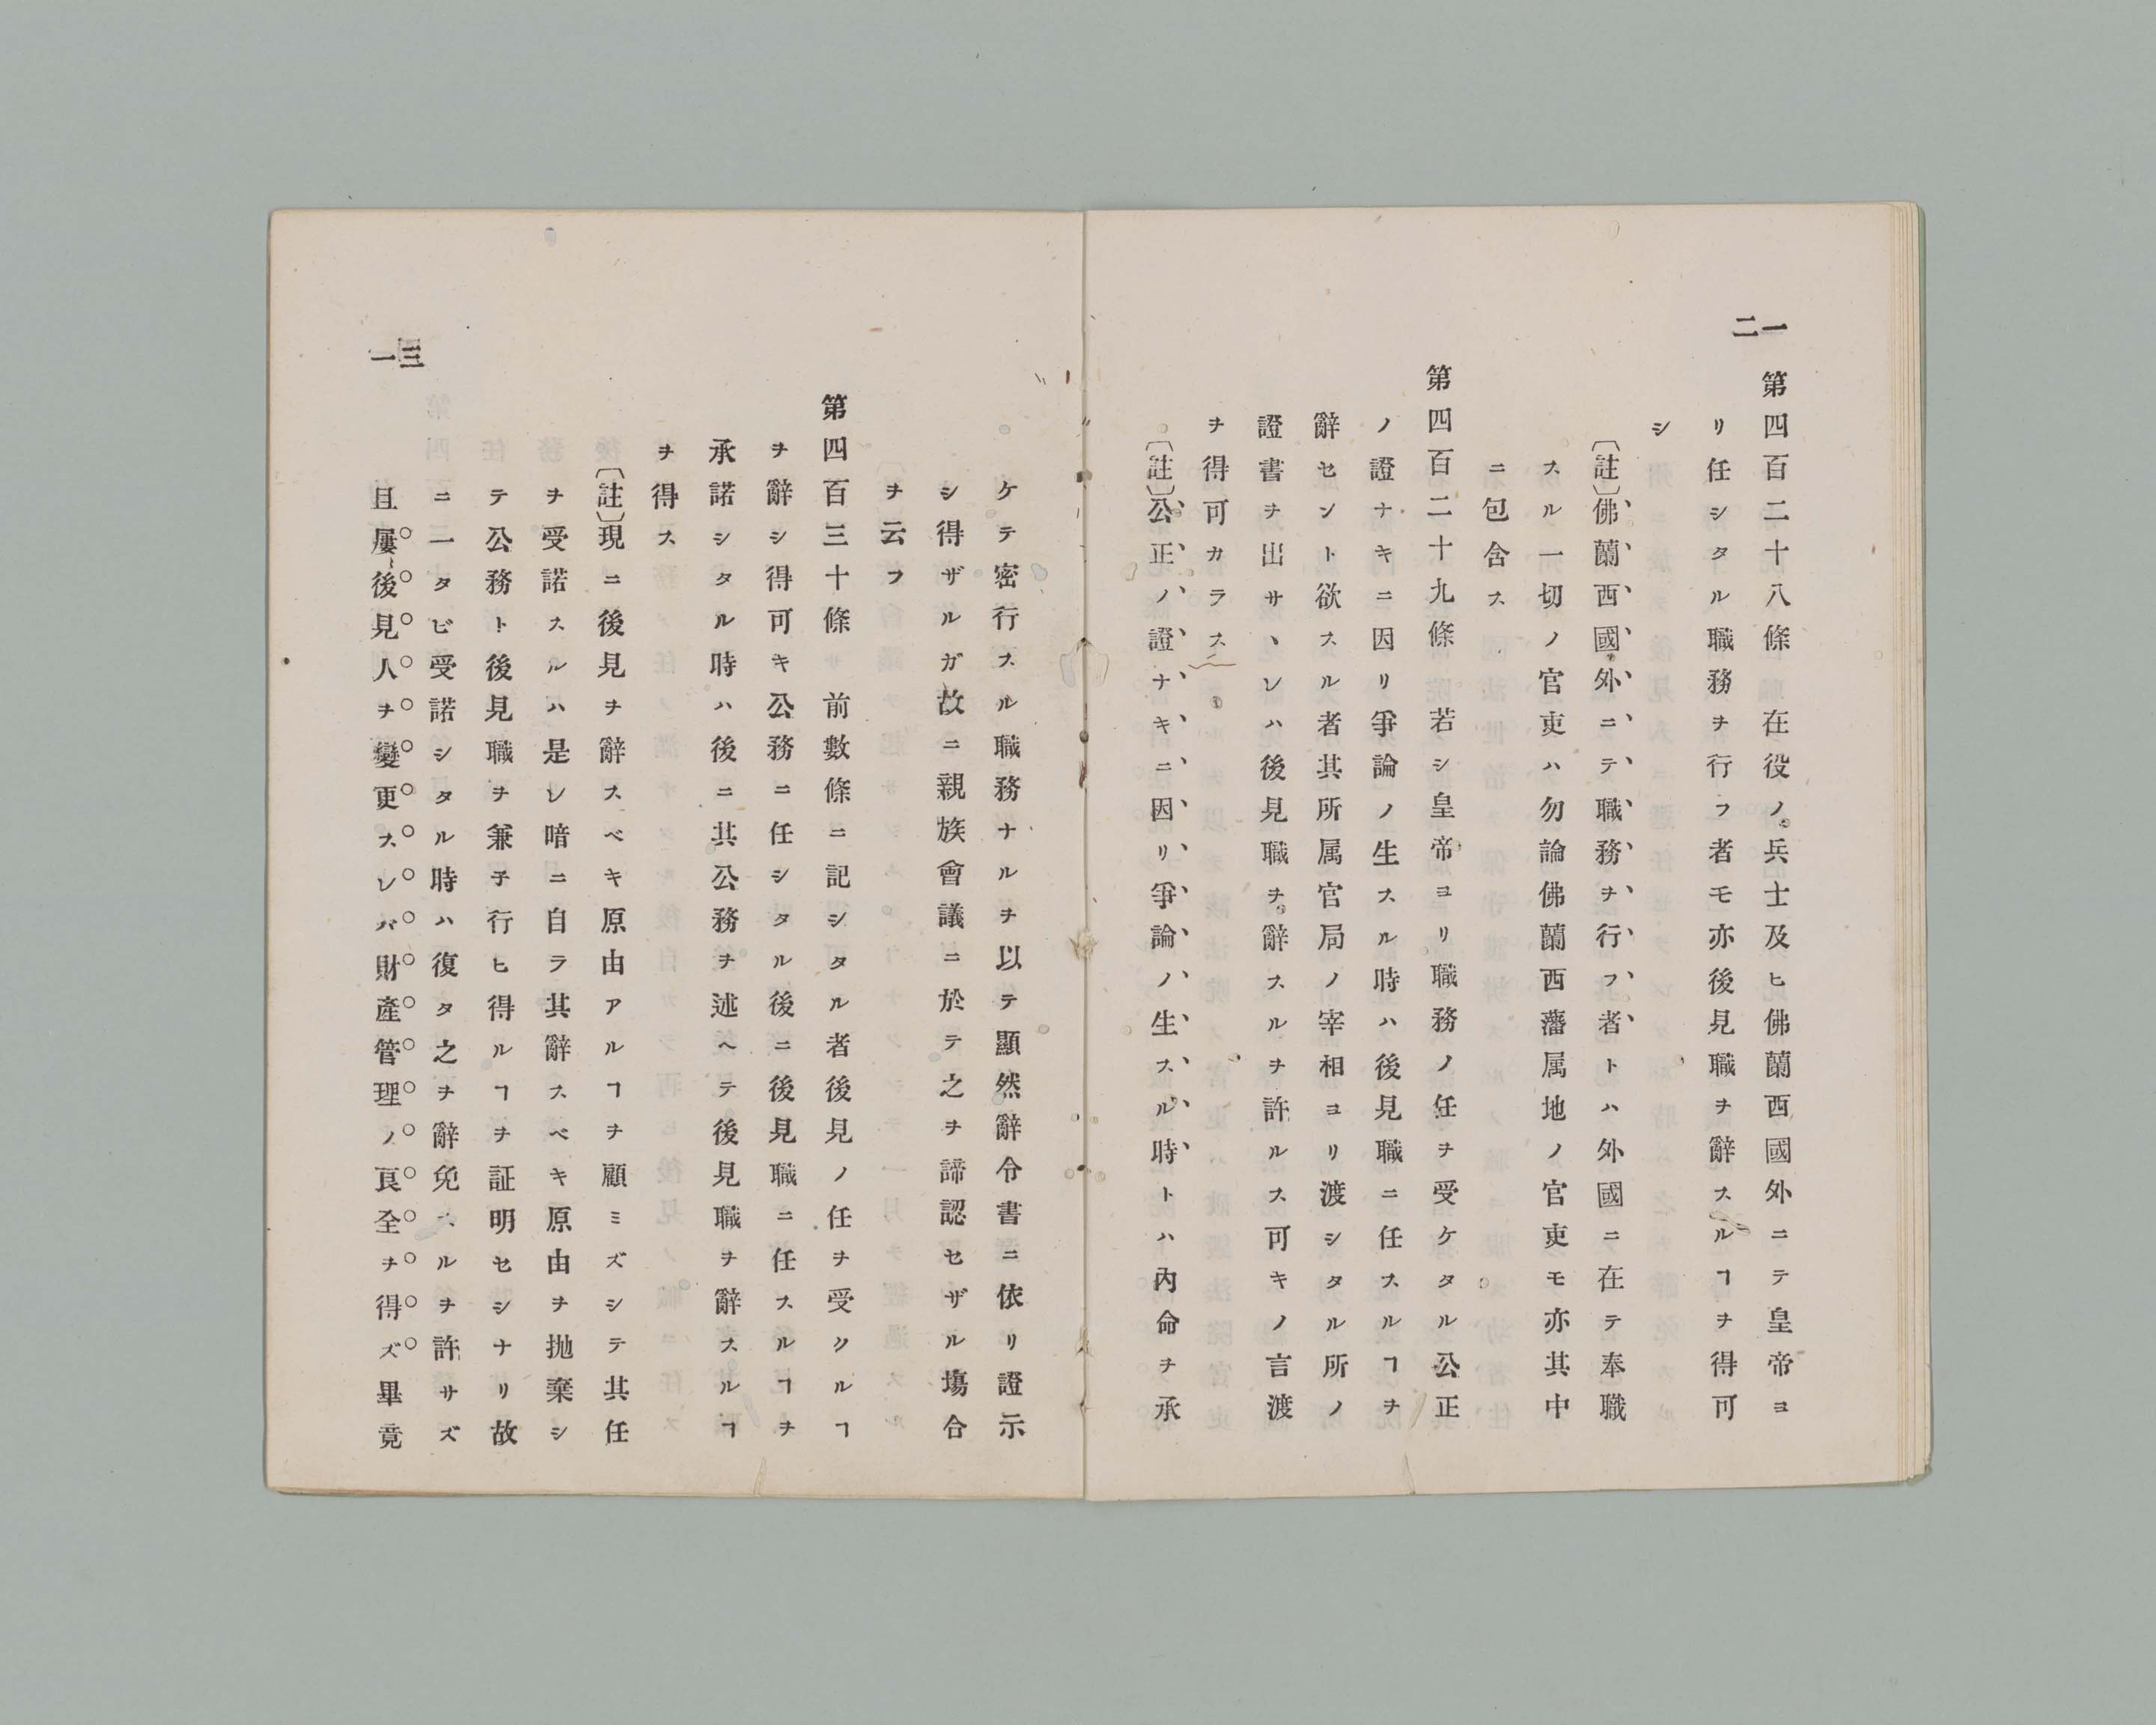 一二
第四百二十八條 在役ノ兵士及ヒ佛蘭西國外ニテ皇帝ヨ
リ任シタル職務ヲ行フ者モ亦後見職ヲ辭スルヿヲ得可
シ
〔註〕佛蘭西國外ニテ職務ヲ行フ者トハ外國ニ在テ奉職
スル一切ノ官吏ハ勿論佛蘭西藩属地ノ官吏モ亦其中
ニ包含ス
第四百二十九條 若シ皇帝ヨリ職務ノ任ヲ受ケタル公正
ノ證ナキニ因リ爭論ノ生スル時ハ後見職ニ任スルヿヲ
辭セント欲スル者其所属官局ノ宰相ヨリ渡シタル所ノ
證書ヲ出サヽレハ後見職ヲ辭スルヲ許ルス可キノ言渡
ヲ得可カラス
〔註〕公正ノ證ナキニ因リ爭論ノ生スル時トハ內命ヲ承
ケテ密行スル職務ナルヲ以テ顯然辭令書ニ依リ證示
シ得ザルガ故ニ親族會議ニ於テ之ヲ諦認セザル塲合
ヲ云フ
第四百三十條 前數條ニ記シタル者後見ノ任ヲ受クルヿ
ヲ辭シ得可キ公務ニ任シタル後ニ後見職ニ任スルヿヲ
承諾シタル時ハ後ニ其公務ヲ述ヘテ後見職ヲ辭スルヿ
ヲ得ス
〔註〕現ニ後見ヲ辭スベキ原由アルヿヲ顧ミズシテ其任
ヲ受諾スルハ是レ暗ニ自ラ其辭スベキ原由ヲ抛棄シ
テ公務ト後見職ヲ兼子行ヒ得ルヿヲ証明セシナリ故
ニ一タビ受諾シタル時ハ復タ之ヲ辭免スルヲ許サズ
且屢後見人ヲ變更スレバ財產管理ノ良全ヲ得ズ畢竟
一三